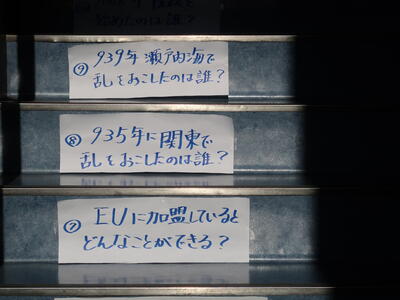 始めたのは誰?
⑨ 939年瀬戸内海で
乱をおこしたのは誰?
⑧ 935年に関東で
乱をおこしたのは誰?
⑦ EUに加盟していると
どんなことができる?